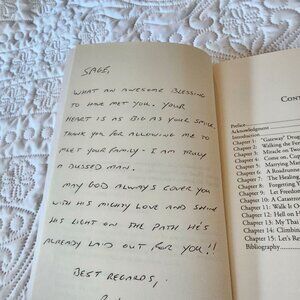 SAGE,
WHAT AN AWESOME BLESSING
TO HAVE MET YOU. YOUR
HEART IS AS BIG AS YOUR SMILE.
THANK YOU FOR ALLOWING ME TO
MEET YOUR FAMILY - I AM TRULY
A BLESSED MAN.
MAY GOD ALWAYS COVER YOU
WITH HIS MIGHTY LOVE AND SHINE
HIS LIGHT ON THE PATH HE'S
ALREADY LAID OUT FOR YOU!!
BEST REGARDS,
CON
Preface
Acknowledgment
Introduction
Chapter 1: "Gateway"
Chapter 2: Walking the
Chapter 3: Miracle on
Chapter 4: Come on,
Chapter 5: Marrying
Chapter 6: A Roadrunne
Chapter 7: The Healing
Chapter 8: Forgetting
Chapter 9: Let Freedom
Chapter 10: A Catastro
Chapter 11: Walk It
Chapter 12: Hell on
Chapter 13: My Thai
Chapter 14: Climbin
Chapter 15: Let's
Bibliography